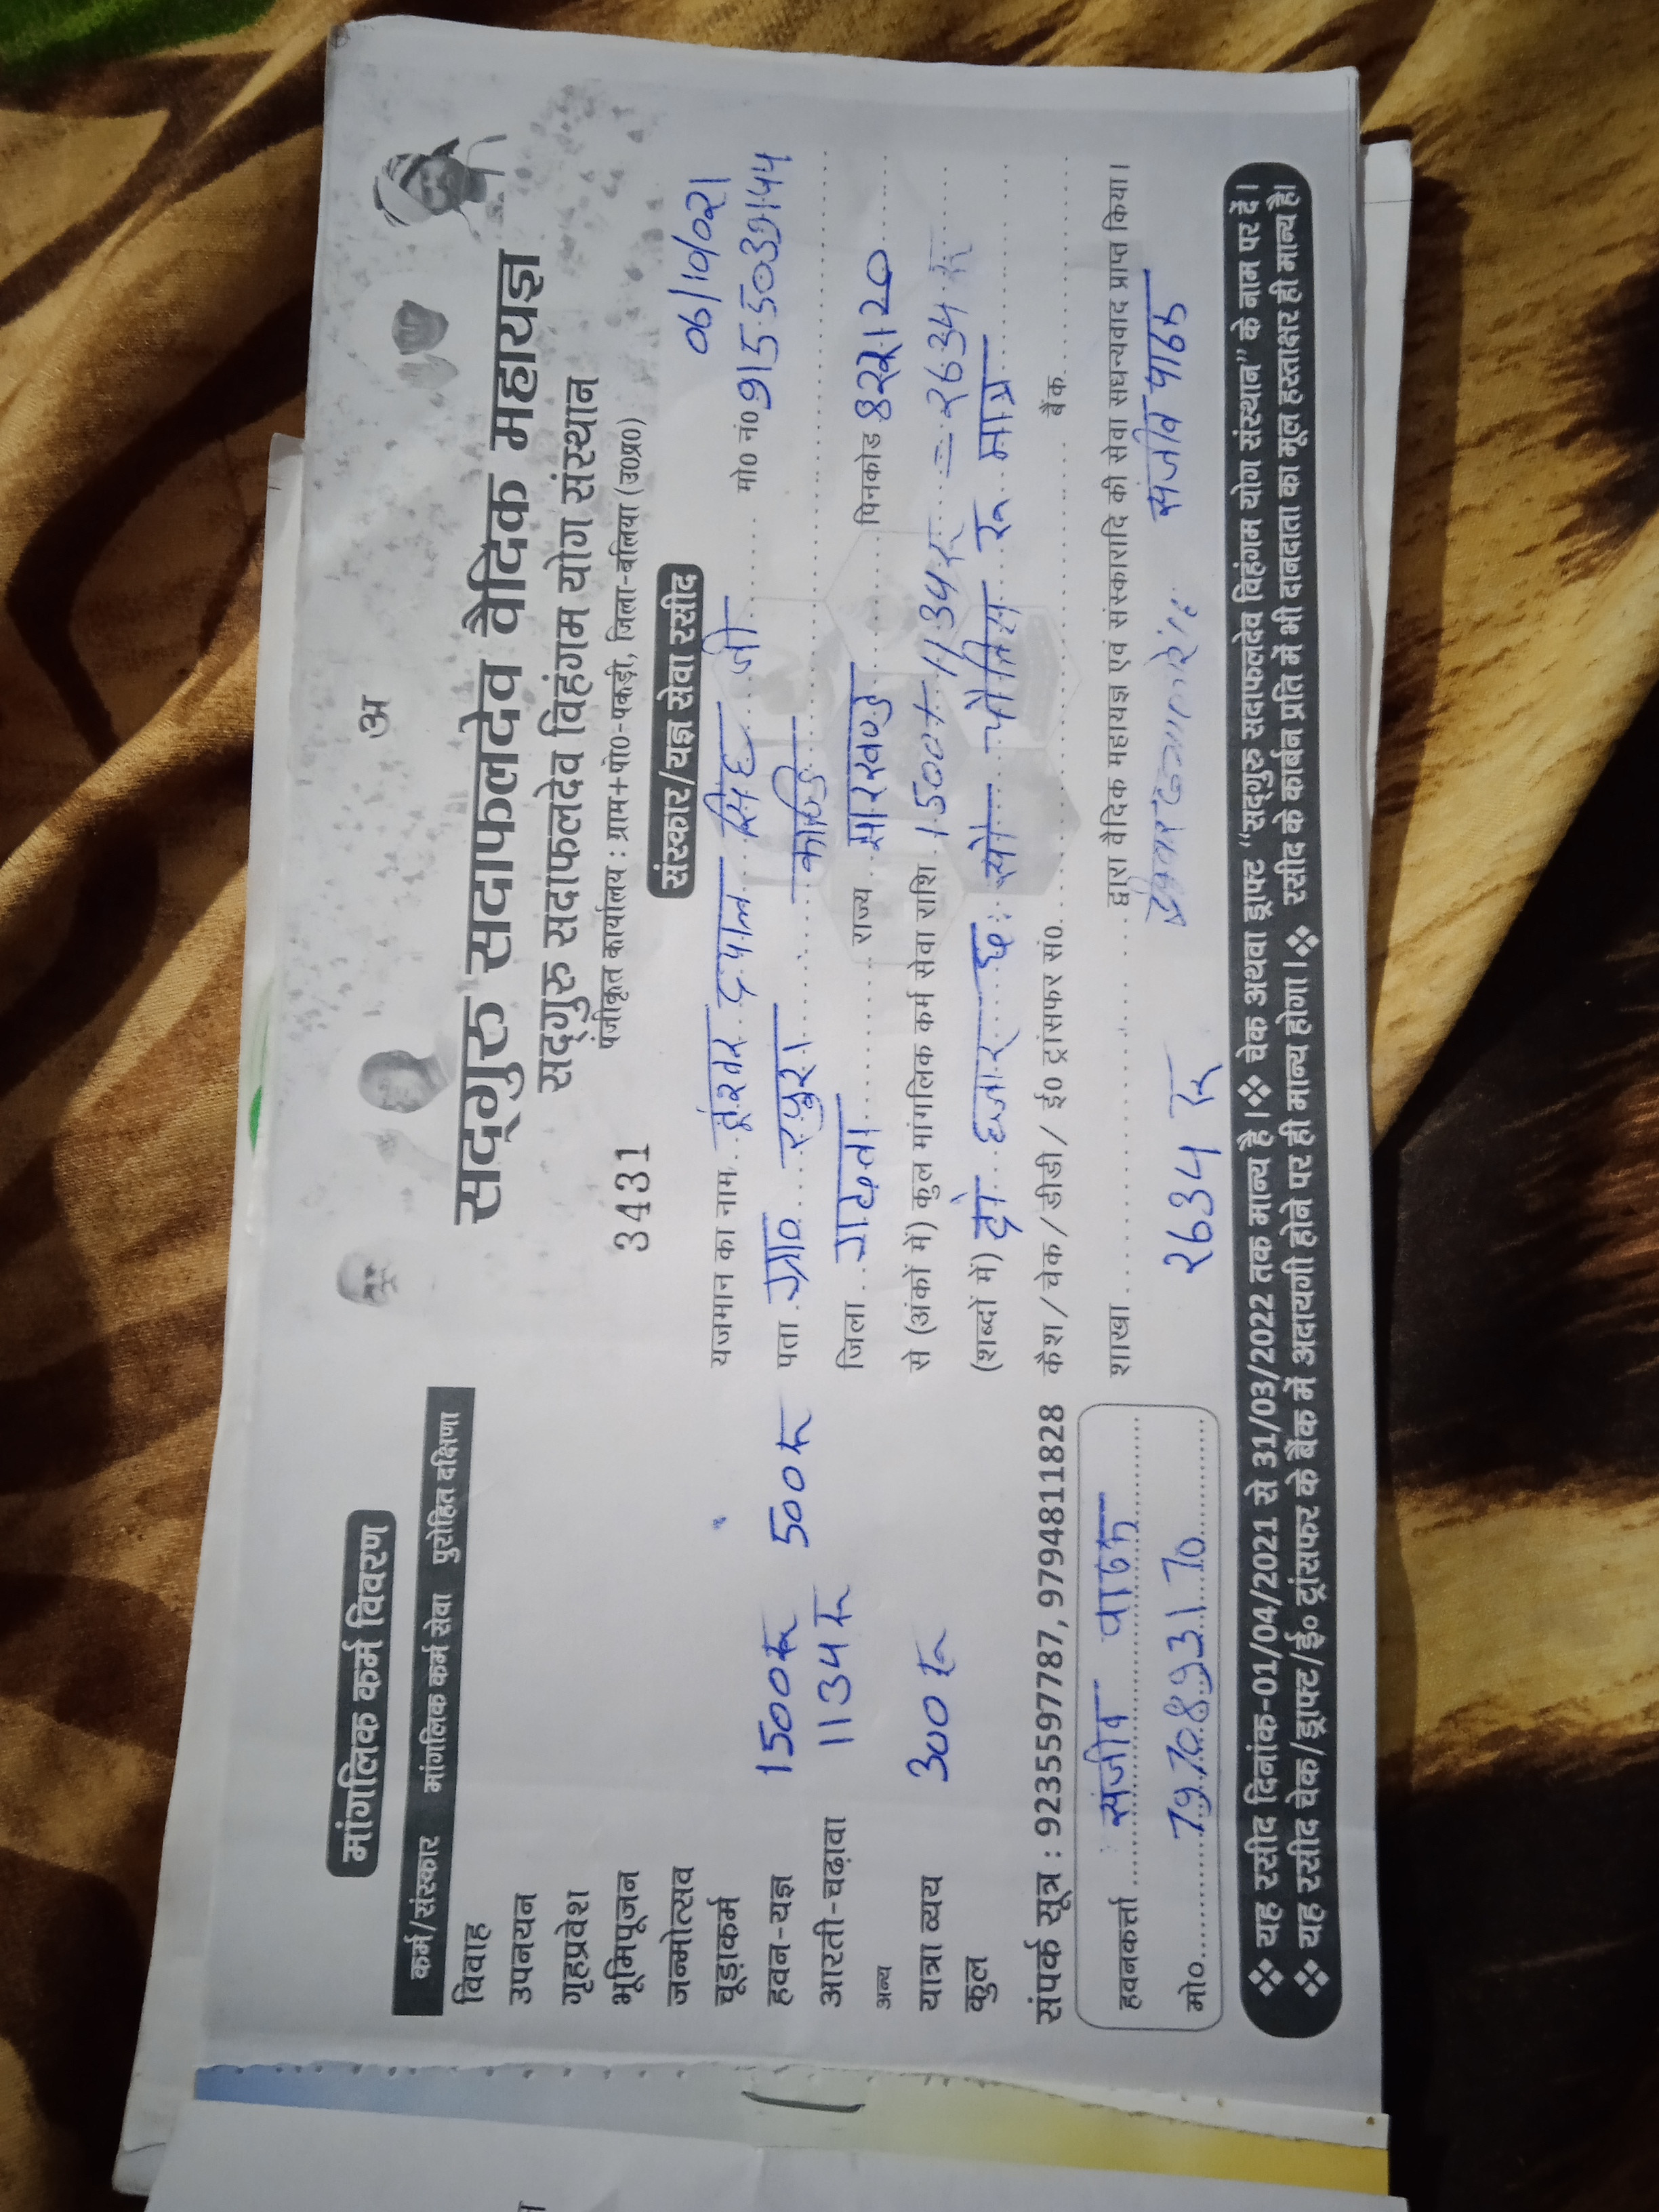 मांगलिक कर्म विवरण
कर्म/संस्कार मांगलिक कर्म सेवा पुरोहित दक्षिणा
विवाह
उपनयन
गृहप्रवेश
भूमिपूजन
जन्मोत्सव
चूड़ाकर्म
हवन-यज्ञ 1500रू 500रू
आरती-चढ़ावा 1134रू
अन्य
यात्रा व्यय 300रू
कुल
संपर्क सूत्र : 9235597787, 9794811828
हवनकर्त्ता संजीव पाठक
मो०. 7970893170
अ
सद्गुरु सदाफलदेव वैदिक महायज्ञ
सद्गुरु सदाफलदेव विहंगम योग संस्थान
पंजीकृत कार्यालय : ग्राम+पो0-पकड़ी, जिला-बलिया (उ0प्र0)
3431 संस्कार/यज्ञ सेवा रसीद 06/10/021
यजमान का नाम दयाल सिंह जी मो0 नं0 9155039144
पता ग्रा० काण्डी
जिला गढ़वा राज्य झारखण्ड पिनकोड 822120
से (अंकों में) कुल मांगलिक कर्म सेवा राशि 1500+1134रू = 2634रू
(शब्दों में) दो हजार छः सौ चौतिस रू मात्र
कैश / चेक / डीडी / ई० ट्रांसफर सं०. बैंक
शाखा द्वारा वैदिक महायज्ञ एवं संस्कारादि की सेवा सधन्यवाद प्राप्त किया।
2634 रू संजीव पाठक
❖ यह रसीद दिनांक-01/04/2021 से 31/03/2022 तक मान्य है।❖ चेक अथवा ड्राफ्ट "सद्गुरु सदाफलदेव विहंगम योग संस्थान" के नाम पर दें।
❖ यह रसीद चेक/ड्राफ्ट/ई० ट्रांसफर के बैंक में अदायगी होने पर ही मान्य होगा।❖ रसीद के कार्बन प्रति में भी दानदाता का मूल हस्ताक्षर ही मान्य है।